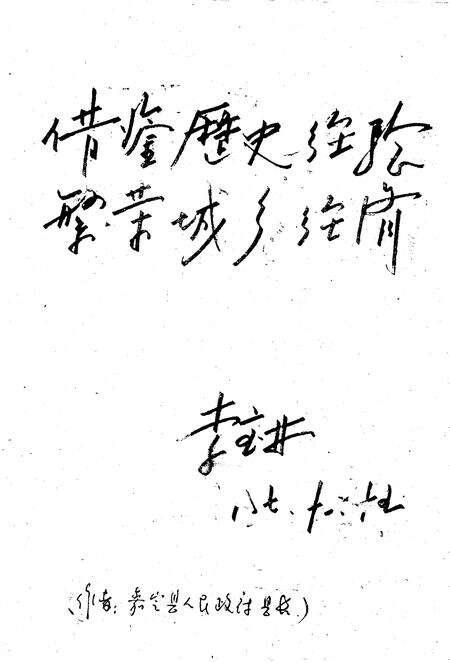 借鉴歷史经验
繁荣城乡经济
李宝林
八七.十
(作者：嘉定县人民政府县长)